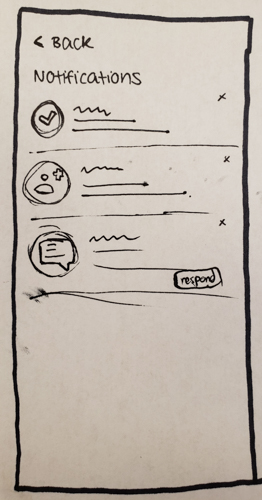 < Back
Notifications
x
x
x
respond